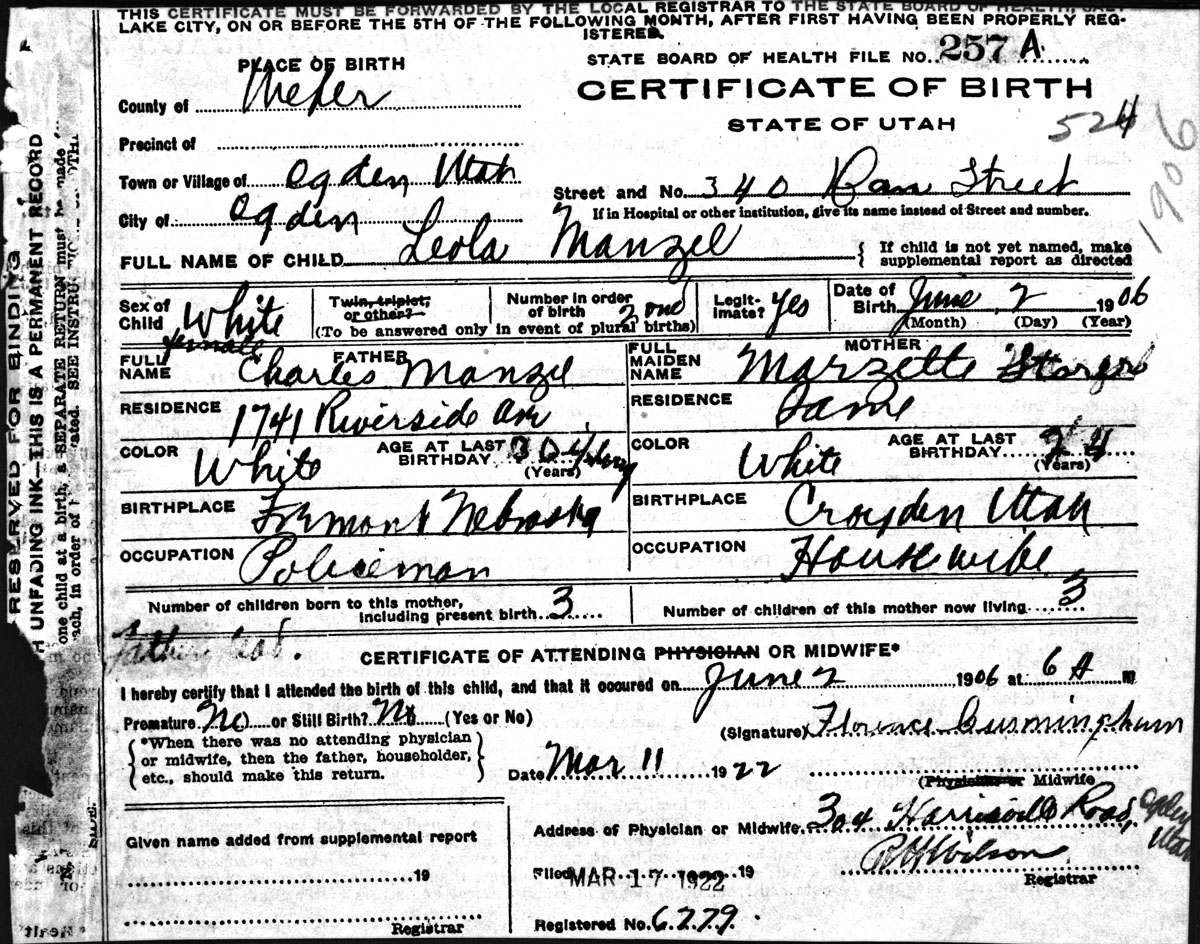 THIS CERTIFICATE MUST BE FORWARDED BY THE LOCAL REGISTRAR TO THE STATE BOARD OF HEALTH, SALT
LAKE CITY, ON OR BEFORE THE 5TH OF THE FOLLOWING MONTH, AFTER FIRST HAVING BEEN PROPERLY REG-
ISTERED.
PLACE OF BIRTH
STATE BOARD OF HEALTH FILE NO. 257 A
County of Weber
CERTIFICATE OF BIRTH
STATE OF UTAH
524
1906
Precinct of
Town or Village of Ogden Utah
Street and No. 340 Street
City of Ogden
If in Hospital or other institution, give its name instead of Street and number.
FULL NAME OF CHILD Leola Manzel
{ If child is not yet named, make
supplemental report as directed
Sex of Child White female
Twin, triplet, or other?
Number in order of birth 2 ond
(To be answered only in event of plural births)
Legit-imate? Yes
Date of Birth June 2 1906
(Month) (Day) (Year)
FATHER
MOTHER
FULL NAME Charles Manzel
FULL MAIDEN NAME Marzette
RESIDENCE 1741 Riverside Ave
RESIDENCE Same
COLOR White
AGE AT LAST BIRTHDAY 30
(Years)
COLOR White
AGE AT LAST BIRTHDAY 24
(Years)
BIRTHPLACE Fremont Nebraska
BIRTHPLACE Croyden Utah
OCCUPATION Policeman
OCCUPATION Housewife
Number of children born to this mother, including present birth 3
Number of children of this mother now living 3
CERTIFICATE OF ATTENDING PHYSICIAN OR MIDWIFE*
I hereby certify that I attended the birth of this child, and that it occured on June 2 1906 at 6 A m
Premature No or Still Birth? No (Yes or No)
(Signature) Florence Cunningham
{ *When there was no attending physician
or midwife, then the father, householder,
etc., should make this return. }
Date Mar 11 1922
(Physician or Midwife
Given name added from supplemental report
Address of Physician or Midwife 304 Harrisville Road, Ogden Utah
19
Filed MAR 17 1922 19
Wilson
Registrar
Registrar
Registered No. 6279.
RESERVED FOR BINDING
H UNFADING INK—THIS IS A PERMANENT RECORD
one child at a birth, a SEPARATE RETURN must be made
each, in order of